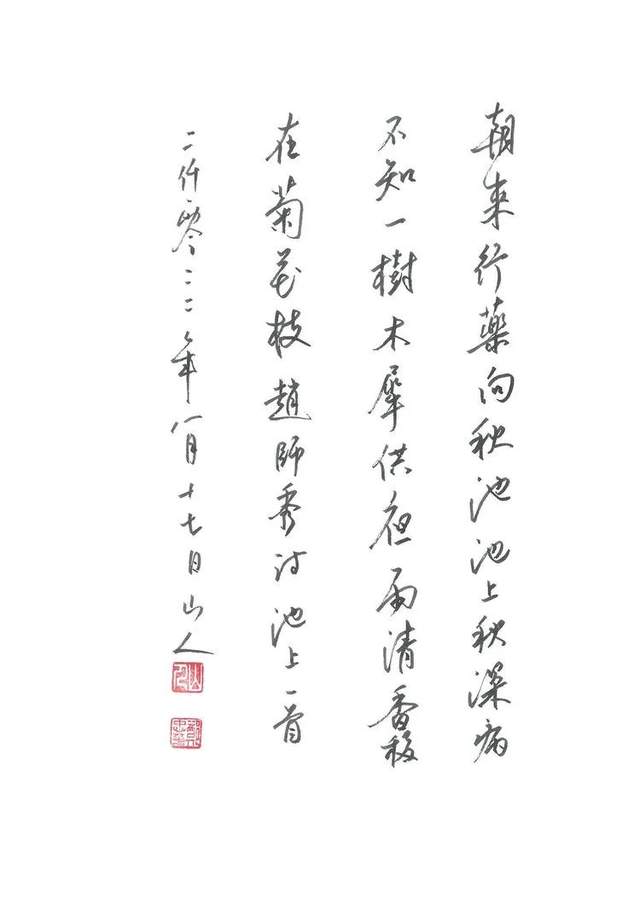 朝来行藥向秋池池上秋深病
不知一樹木犀供夜雨清香移
在菊花枝趙師秀詩池上一首
二仟零二二年八月十七日山人
山人